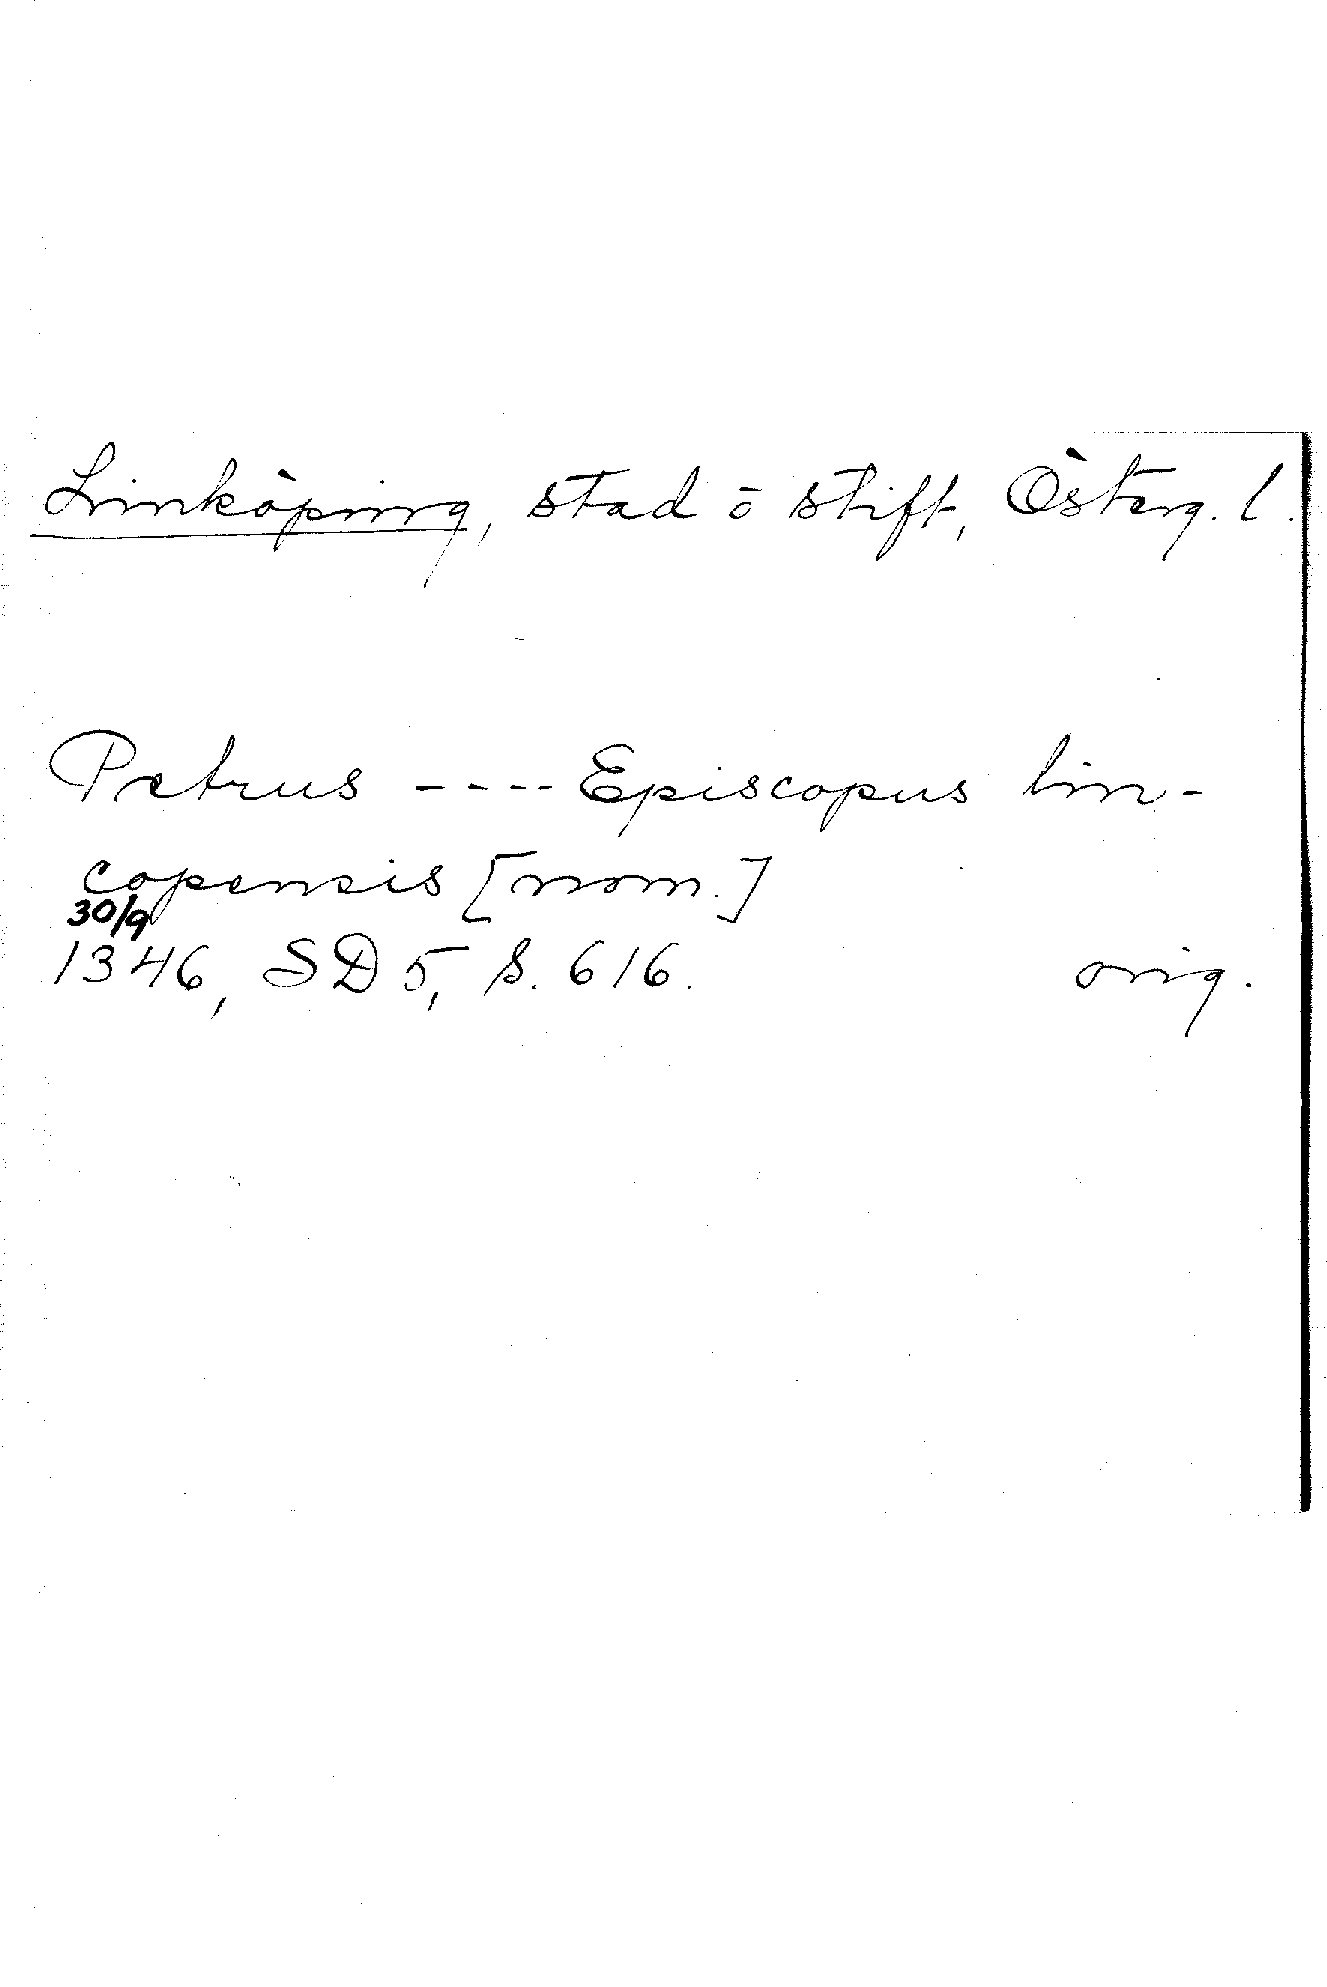 Linköping, stad o stift, Österg. l.
Petrus ---- Episcopus lin-
copensis [nom.]
30/9
1346, SD 5, s. 616. orig.